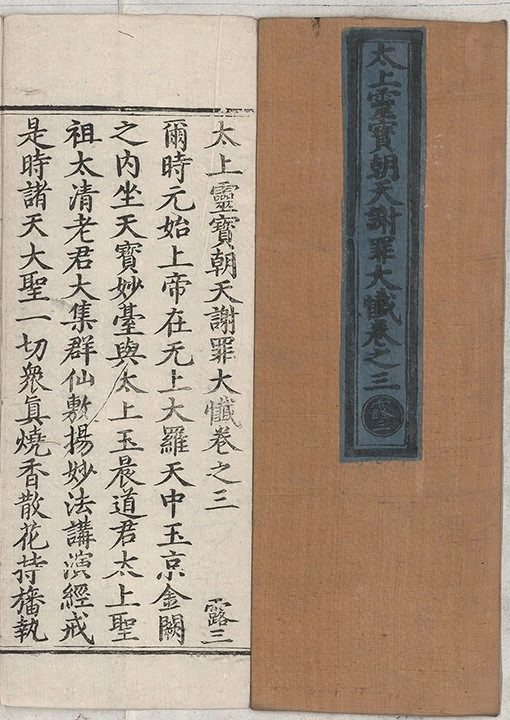 太上靈寶朝天謝罪大懺卷之三
露三
太上靈寶朝天謝罪大懺卷之三 露三
爾時元始上帝在无上大羅天中玉京金闕
之内坐天寶妙臺與太上玉晨道君太上聖
祖太清老君大集群仙敷揚妙法講演經戒
是時諸天大聖一切衆眞燒香散花持旛執